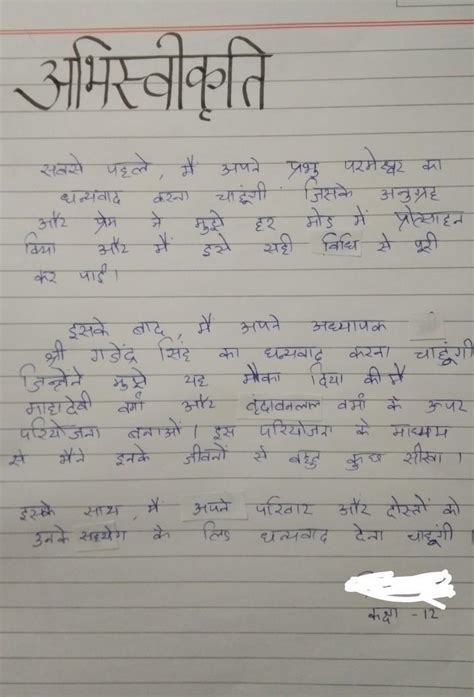 अभिस्वीकृति
सबसे पहले, मैं अपने प्रभु परमेश्वर का
धन्यवाद करना चाहूंगी जिसके अनुग्रह
और प्रेम ने मुझे हर मोड में प्रोत्साहन
दिया और मैं इसे सही विधि से पूरी
कर पाई।
इसके बाद, मैं अपने अध्यापक
श्री गजेंद्र सिंह का धन्यवाद करना चाहूंगी
जिन्होंने मुझे यह मौका दिया की मैं
माहादेवी वर्मा और वृंदावनलाल वर्मा के ऊपर
परियोजना बनाओं। इस परियोजना के माध्यम
से मैंने इनके जीवनों से बहुत कुछ सीखा।
इसके साथ, मैं अपने परिवार और दोस्तों को
उनके सहयोग के लिए धन्यवाद देना चाहूंगी।
कक्षा -12